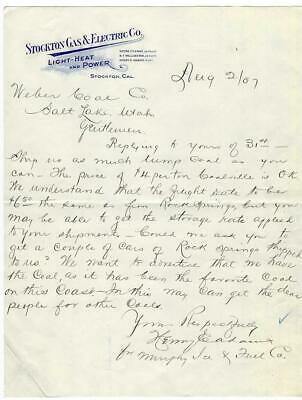 STOCKTON GAS & ELECTRIC CO.
LIGHT-HEAT
AND POWER
STOCKTON, CAL.
Aug 2/07
Weber Coal Co.
Salt Lake, Utah
Gentlemen
Replying to yours of 31st —
Ship us as much lump Coal as you
can — The price of $4 per ton Coalville is O.K.
We understand that the freight rate to be
4.50 the same as from Rock Springs, but you
may be able to get the storage rate applied
to your shipments — Could we ask you to
get a couple of cars of Rock Springs shipped
to us? We want to advertise that we have
the Coal, as it has been the favorite Coal
on this Coast — In this way can get the
people for other Coals.
Yours Respectfully
Henry Eadams
for Murphy Ice & Fuel Co.